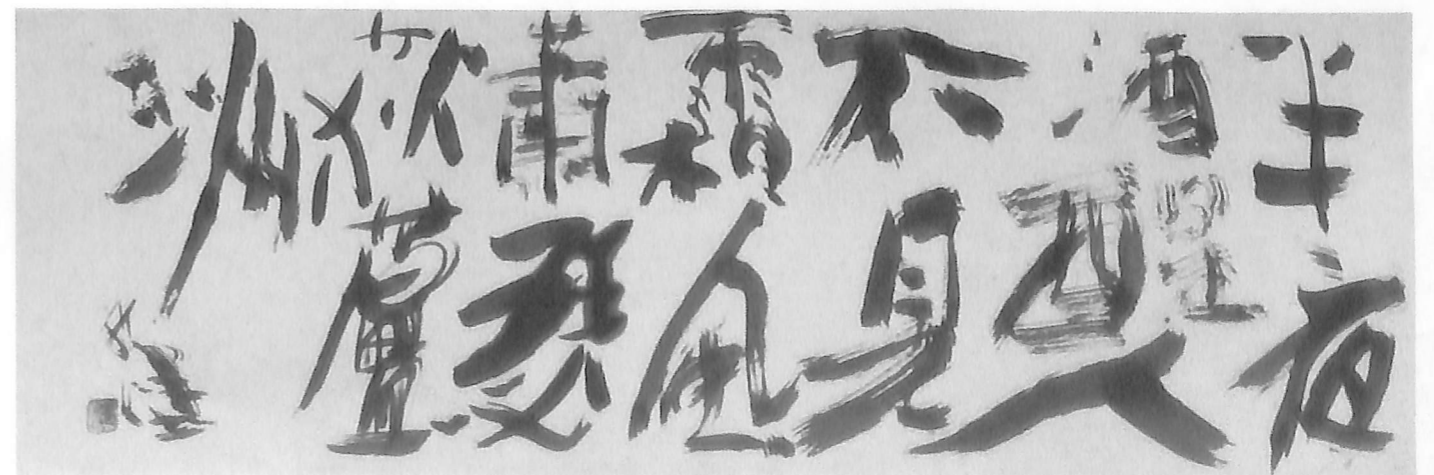 半夜
酒醒人
不見
霜風
蕭瑟
荻蘆
洲